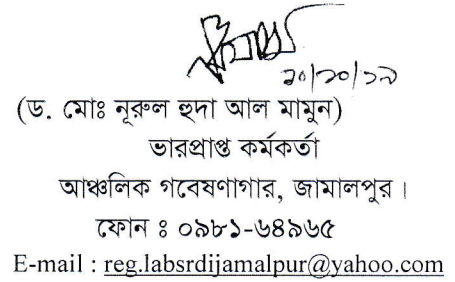 ২০/১০/১৯
(ড. মোঃ নূরুল হুদা আল মামুন)
ভারপ্রাপ্ত কর্মকর্তা
আঞ্চলিক গবেষণাগার, জামালপুর।
ফোন ঃ ০৯৮১-৬৪৯৬৫
E-mail : reg.labsrdijamalpur@yahoo.com